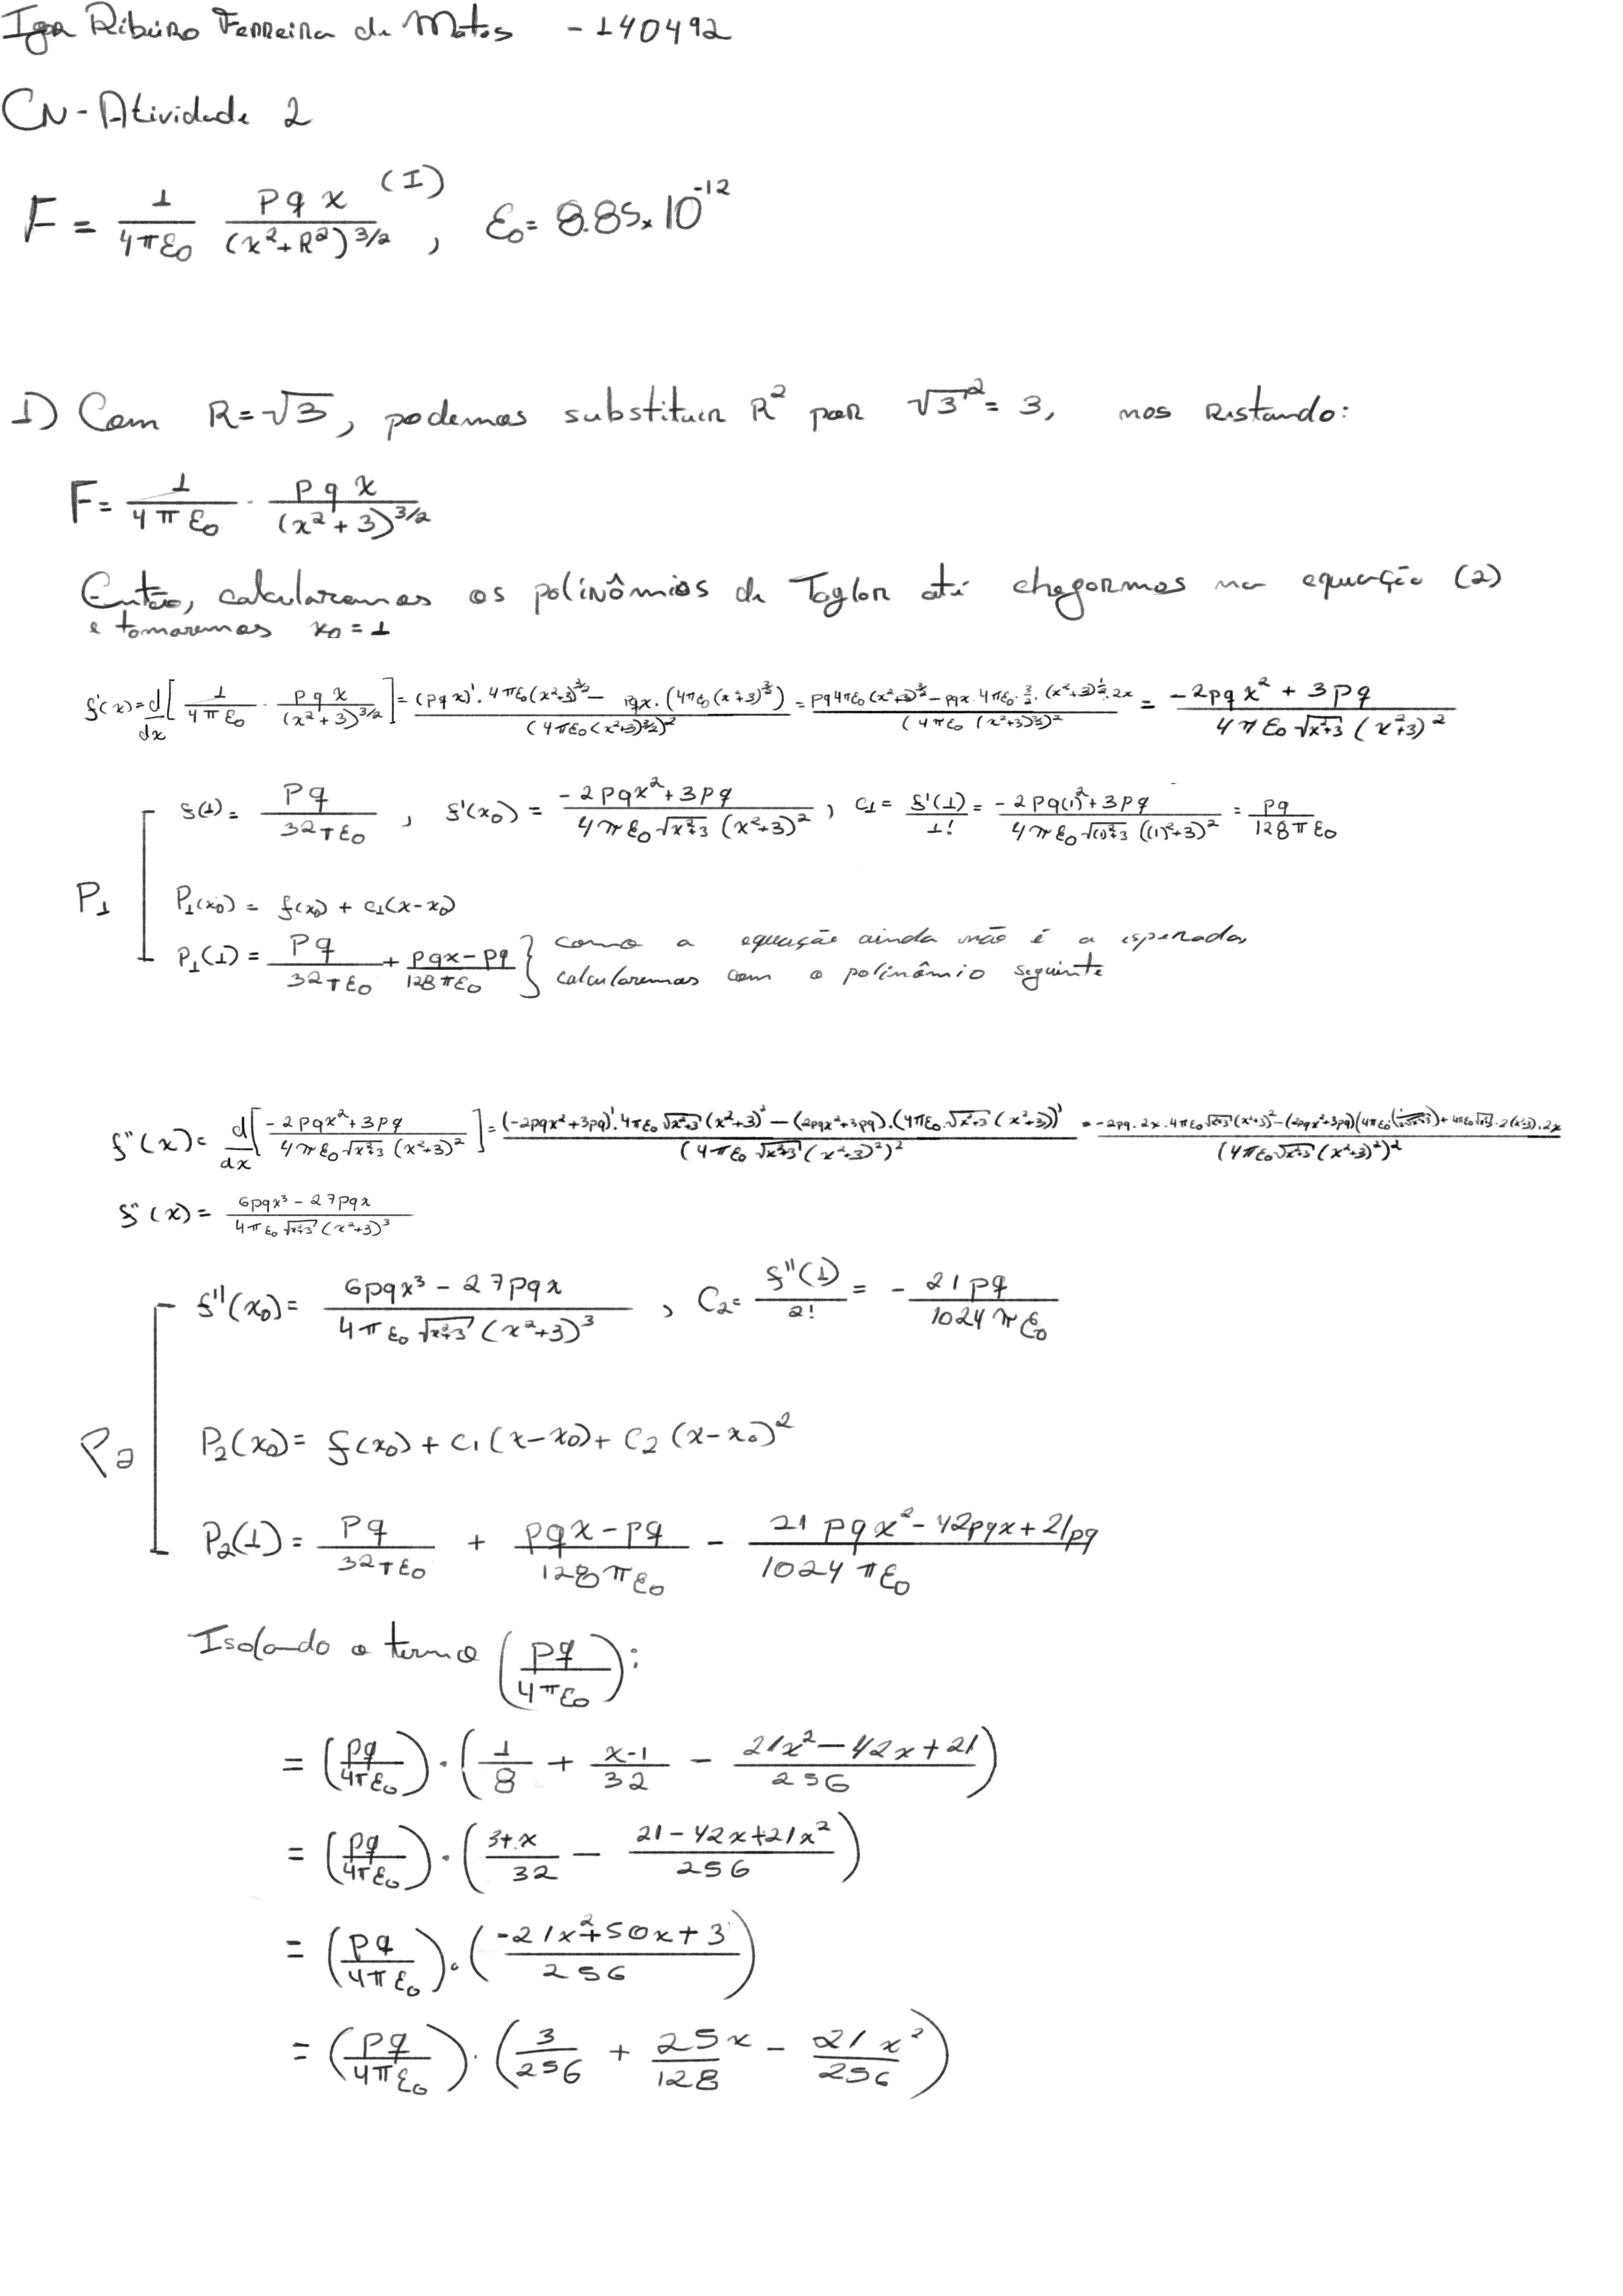 Igor Ribeiro Ferreira de Matos - 140492
CN - Atividade 2
F = \frac{1}{4πε₀} \frac{pqx}{(x²+R²)^{3/2}} (I), ε₀ = 8.85×10^{-12}
1) Com R=√3, podemos substituir R² por √3² = 3, nos restando:
F = \frac{1}{4πε₀} · \frac{pqx}{(x²+3)^{3/2}}
Então, calcularemos os polinômios de Taylor até chegarmos na equação (2)
e tomaremos x₀ = 1
f'(x) = \frac{d}{dx}[\frac{1}{4πε₀} · \frac{pqx}{(x²+3)^{3/2}}] = \frac{(pqx)'·4πε₀(x²+3)^{3/2} - pqx·(4πε₀(x²+3)^{3/2})}{(4πε₀(x²+3)^{3/2})²} = \frac{pq4πε₀(x²+3)^{3/2} - pqx·4πε₀·\frac{3}{2}·(x²+3)^{1/2}·2x}{(4πε₀(x²+3)^{3/2})²} = \frac{-2pqx²+3pq}{4πε₀√(x²+3)(x²+3)²}
f(1) = \frac{pq}{32πε₀}, f'(x₀) = \frac{-2pqx²+3pq}{4πε₀√(x²+3)(x²+3)²}, C₁ = \frac{f'(1)}{1!} = \frac{-2pq(1)²+3pq}{4πε₀√((1)²+3)((1)²+3)²} = \frac{pq}{128πε₀}
P₁
P₁(x₀) = f(x₀) + C₁(x-x₀)
P₁(1) = \frac{pq}{32πε₀} + \frac{pqx-pq}{128πε₀} } como a equação ainda não é a esperada,
calcularemos com o polinômio seguinte
f''(x) = \frac{d}{dx}[\frac{-2pqx²+3pq}{4πε₀√(x²+3)(x²+3)²}] = \frac{(-2pqx²+3pq)'·4πε₀√(x²+3)(x²+3)² - (2pqx²+3pq)·(4πε₀·√(x²+3)(x²+3))'}{(4πε₀√(x²+3)(x²+3)²)²} = \frac{-2pq·2x·4πε₀√(x²+3)(x²+3)² - (2pqx²+3pq)(4πε₀ + 4πε₀√(x²+3)·2(x²+3)·2x}{(4πε₀√(x²+3)(x²+3)²)²}
f''(x) = \frac{6pqx³-27pqx}{4πε₀√(x²+3)(x²+3)³}
f''(x₀) = \frac{6pqx³-27pqx}{4πε₀√(x²+3)(x²+3)³}, C₂ = \frac{f''(1)}{2!} = -\frac{21pq}{1024πε₀}
P₂
P₂(x₀) = f(x₀) + C₁(x-x₀) + C₂(x-x₀)²
P₂(1) = \frac{pq}{32πε₀} + \frac{pqx-pq}{128πε₀} - \frac{21pqx²-42pqx+21pq}{1024πε₀}
Isolando o termo (\frac{pq}{4πε₀}):
= (\frac{pq}{4πε₀})·(\frac{1}{8} + \frac{x-1}{32} - \frac{21x²-42x+21}{256})
= (\frac{pq}{4πε₀})·(\frac{3+x}{32} - \frac{21-42x+21x²}{256})
= (\frac{pq}{4πε₀})·(\frac{-21x²+50x+3}{256})
= (\frac{pq}{4πε₀})·(\frac{3}{256} + \frac{25x}{128} - \frac{21x²}{256})